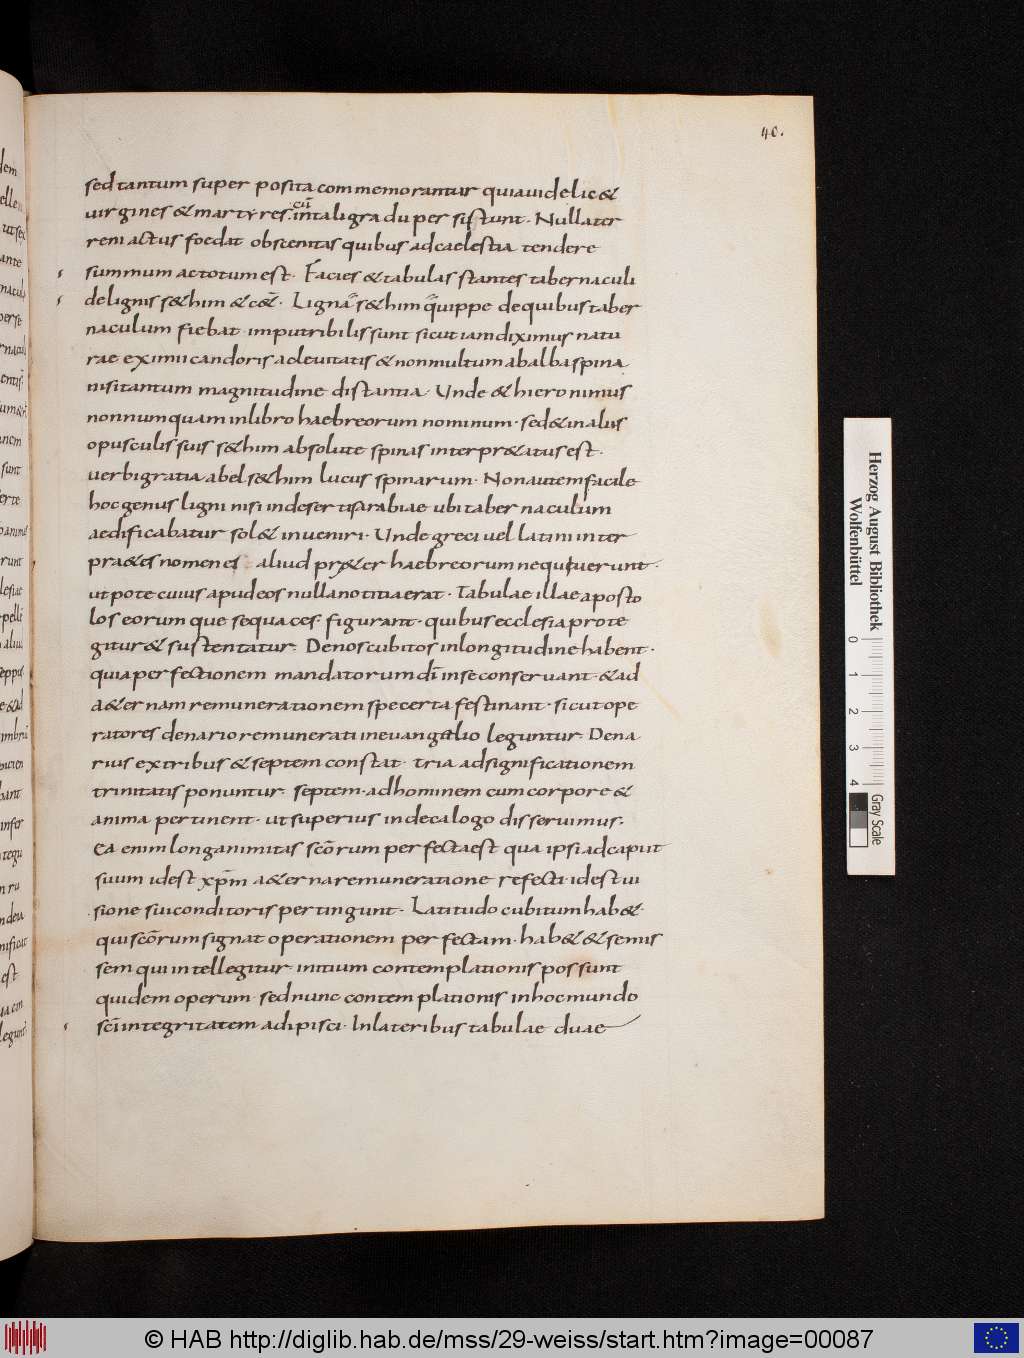 40.
sed tantum super posita commemorantur quia videlic&
virgines & martyres. cū intaligradu persistunt. Nulla ter
rem actus foedat obscenitas quibus ad caelestia tendere
summum ac totum est. Facies & tabulas stantes tabernaculi
de lignis s&him & c&. Ligna s&him quippe de quibus taber
naculum fiebat. imputribilis sunt sicut iam diximus natu
rae eximii candoris ac levitatis & non multum ab alba spina
nisi tantum magnitudine distantia. Unde & hieronimus
nonnumquam in libro haebreorum nominum. sed & in aliis
opusculis suis s&him absolute spinas interpr&atus est.
verbi gratia abel s&him lucus spinarum. Non autem facile
hoc genus ligni nisi in desertis arabiae ubi tabernaculum
aedificabatur sol& inveniri. Unde greci vel latini inter
pra&es nomen ei aliud pr&er haebreorum nequiverunt.
utpote cuius apud eos nulla notitia erat. Tabulae illae aposto
los eorumque sequaces figurant. quibus ecclesia prote
gitur & sustentatur. Denos cubitos in longitudine habent.
quia perfectionem mandatorum dī in se conservant. & ad
a&ernam remunerationem spe certa festinant. sicut ope
ratores denario remunerati in evangelio leguntur. Dena
rius ex tribus & septem constat. tria ad significationem
trinitatis ponuntur. septem. ad hominem cum corpore &
anima pertinent. ut superius in decalogo disseruimus.
Ea enim longanimitas scōrum perfecta est qua ipsi ad caput
suum id est xp̄m a&erna remuneratione refecti. id est vi
sione sui conditoris pertingunt. Latitudo cubitum hab&.
qui scōrum signat operationem perfectam. hab& & semis
sem qui intellegitur initium contemplationis possunt
quidem operum. sed nunc contemplationis in hoc mundo
scī integritatem adipisci. In lateribus tabulae duae
Herzog August Bibliothek
Wolfenbüttel
0 1 2 3 4
Gray Scale
© HAB http://diglib.hab.de/mss/29-weiss/start.htm?image=00087